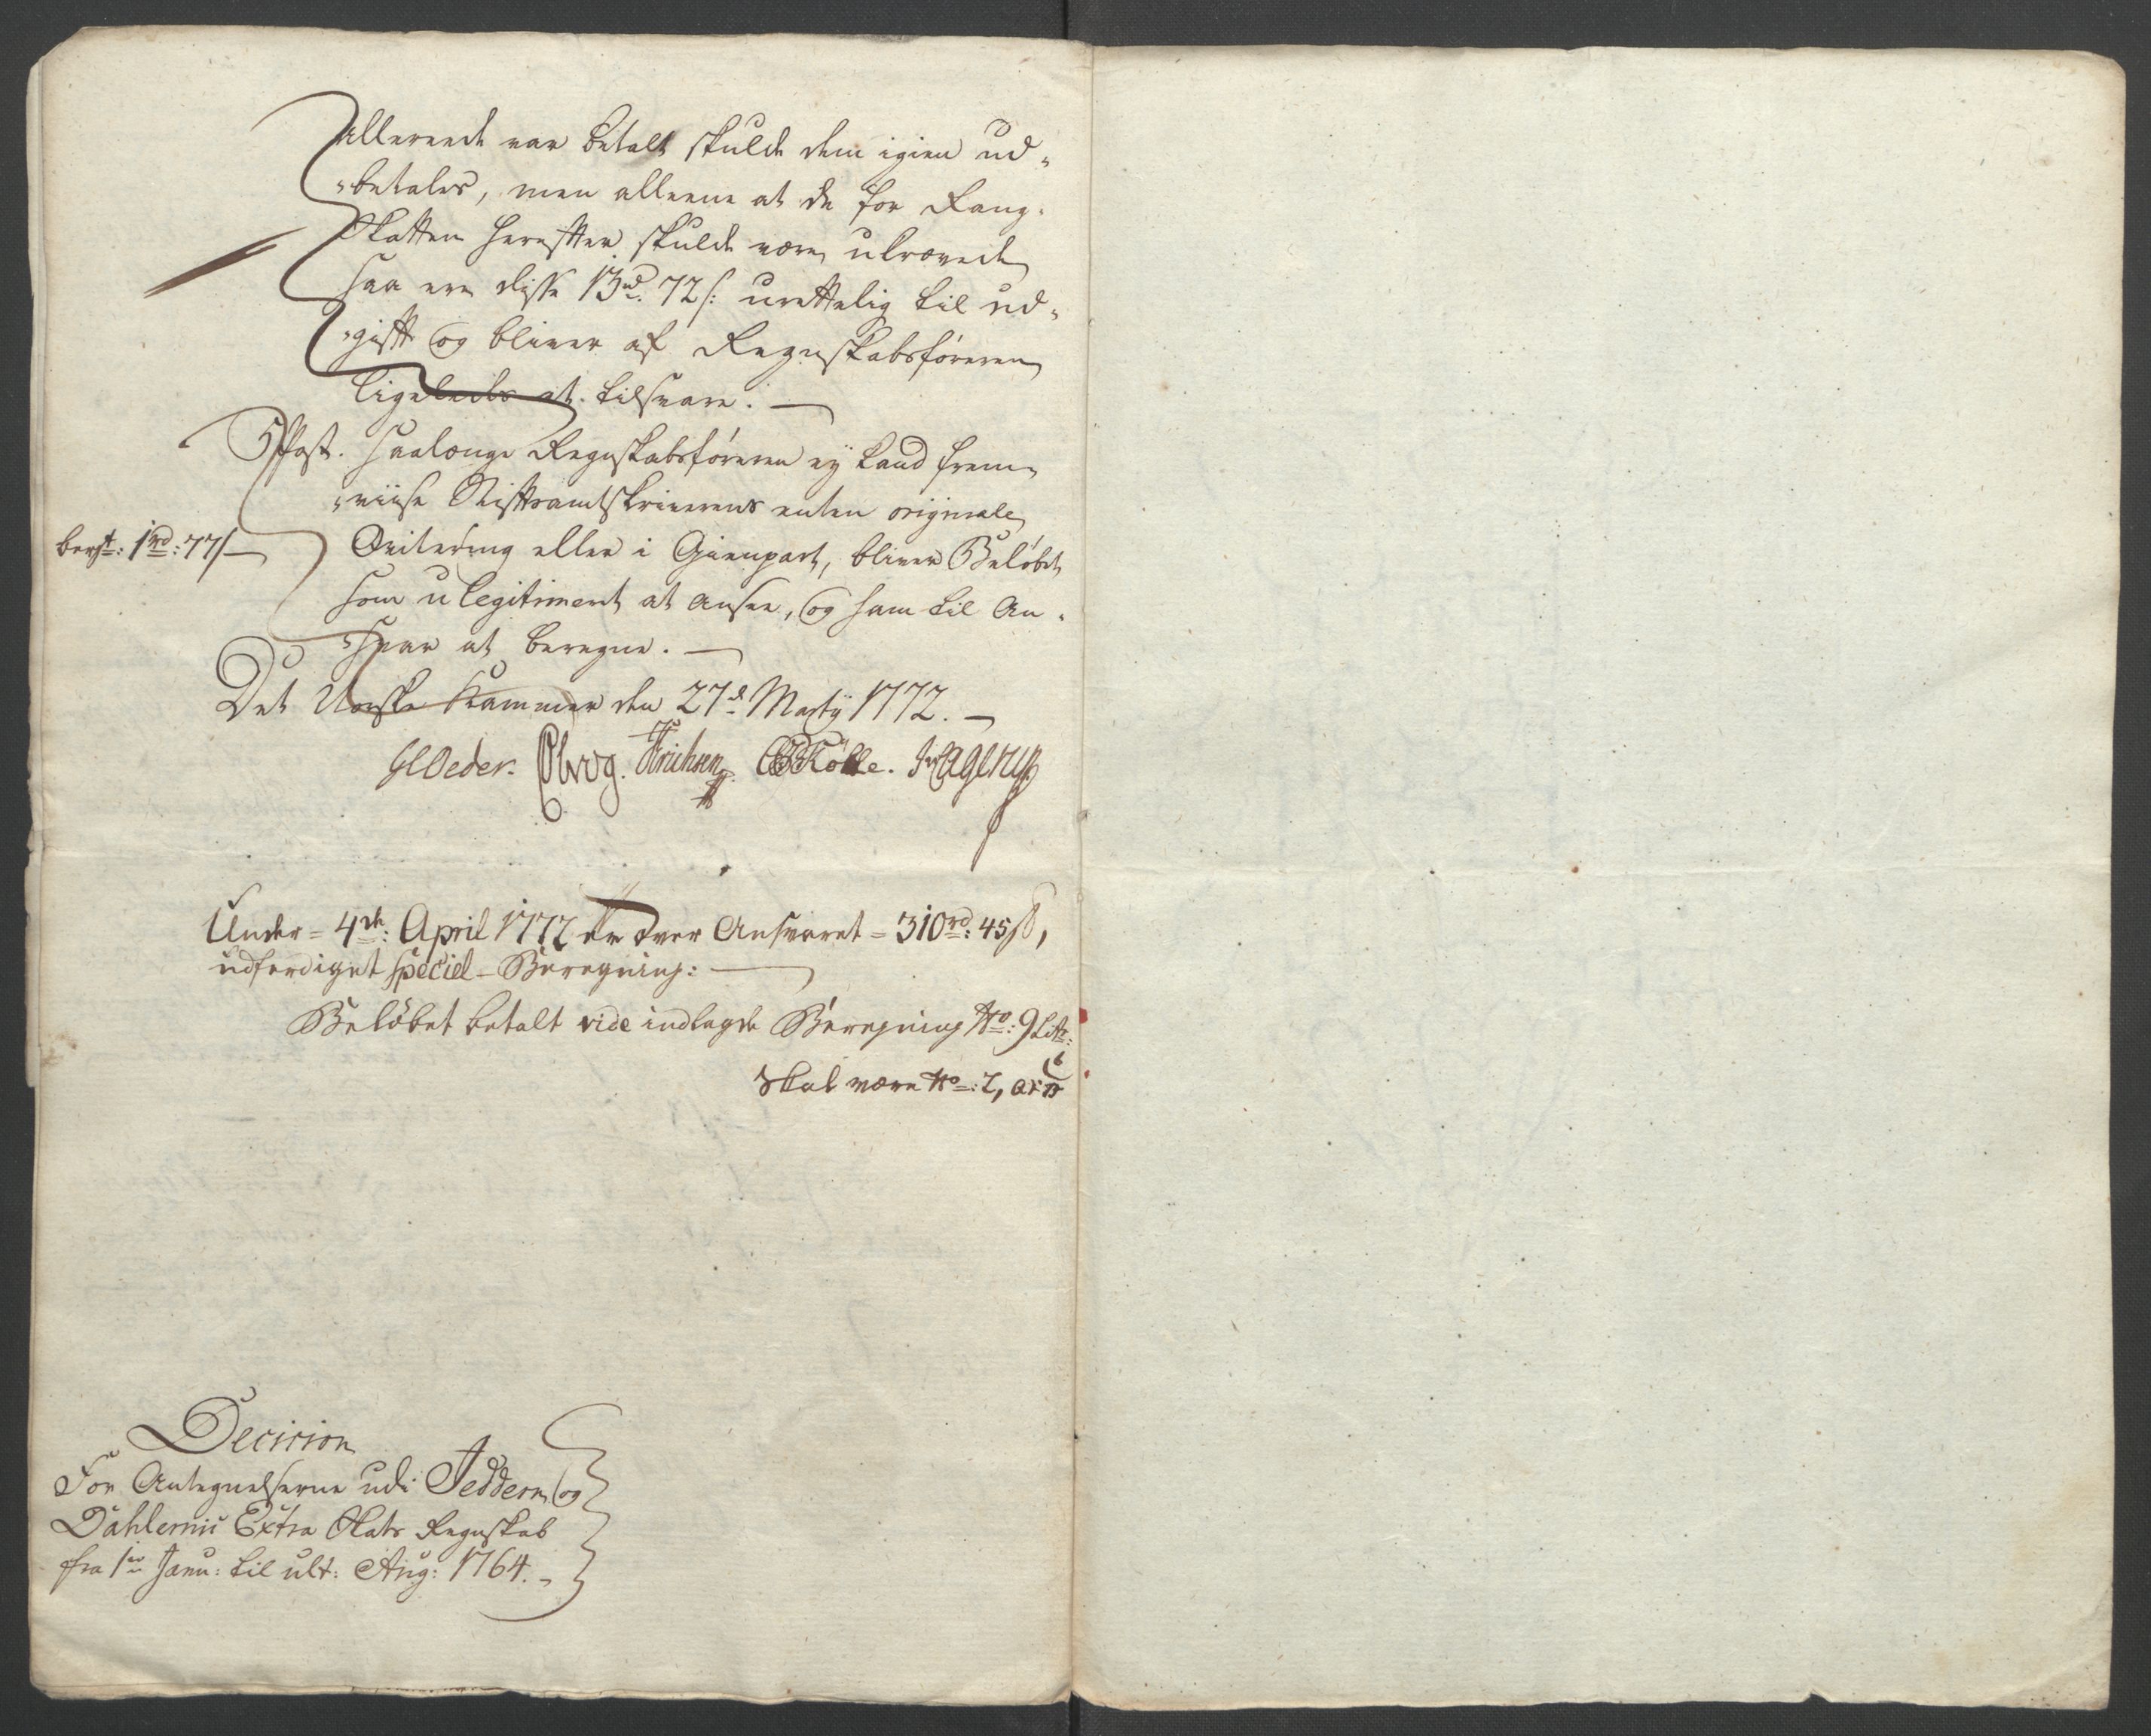 allereede var betalt skulde dem igien ud-
-betales, men alleene at de for Rang-
Skatten herefter skulde være ukrævede
saa ere disse 13rd. 72s: urettelig til ud-
-gift og bliver af Regnskabsføreren
ligeleedes at tilsvare. —
5te Post. Saalænge Regnskabsføreren ey kand frem-
-viise Stiftsamtskriverens enten originale
bergt: 1rd: 77s — Qvitering eller i Gienpart, bliver Beløbet
som ulegitimeret at ansee, og ham til An-
-svar at beregne. —
Det Norske Kammer den 27de Marty 1772. —
GCOeder. Erichsen. Kölle.
Under = 4de: April 1772 er over Ansvaret = 310rd: 45s,
udferdiget speciel - Beregning: —
Beløbet betalt vide indlagde Beregning No: 9
Skal være No: 7,
Decision
For Antegnelserne udi Jedderen og
Dahlernis Extra Skats Regnskab
fra 1ste Janu: til ult: Aug: 1764. -